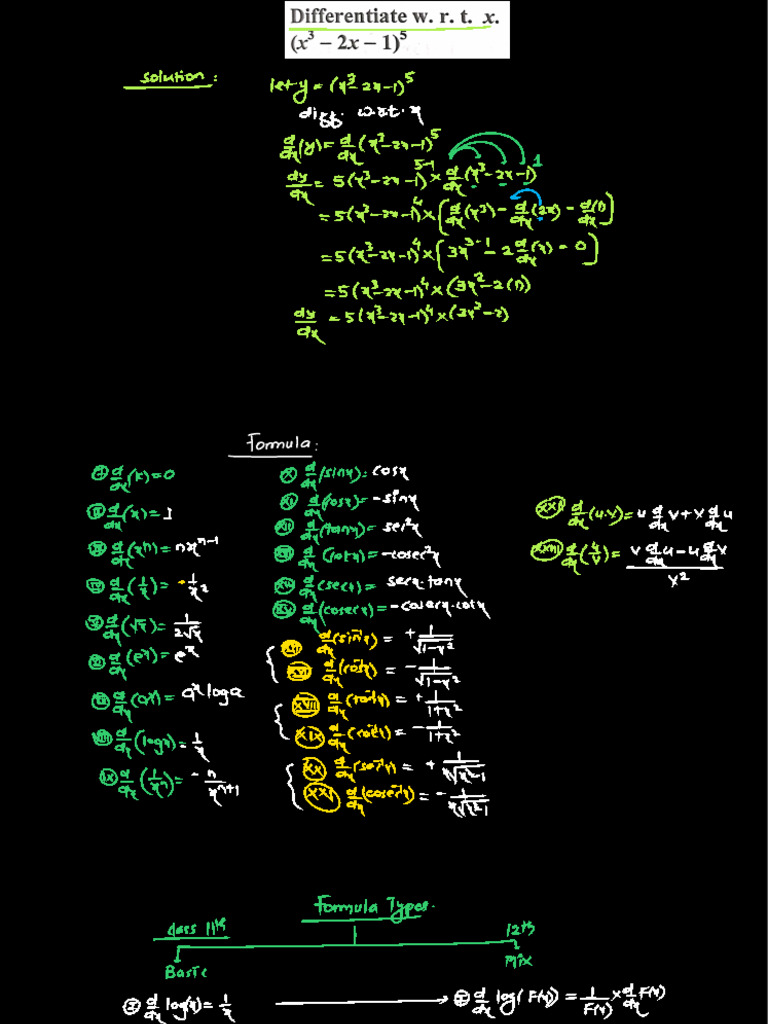 Differentiate w. r. t. x.
(x³ – 2x – 1)⁵
Solution :
let y = (x³-2x-1)⁵
diff. w.r.t. x
d/dx (y) = d/dx (x³-2x-1)⁵
dy/dx = 5(x³-2x-1)⁵⁻¹ × d/dx (x³-2x-1)¹
= 5(x³-2x-1)⁴ × [d/dx (x³) - d/dx (2x) - d/dx (1)]
= 5(x³-2x-1)⁴ × [3x³⁻¹ - 2 d/dx (x) - 0]
= 5(x³-2x-1)⁴ × (3x²-2(1))
dy/dx = 5(x³-2x-1)⁴ × (3x²-2)
Formula :
I d/dx (k) = 0
II d/dx (x) = 1
III d/dx (xⁿ) = nxⁿ⁻¹
IV d/dx (1/x) = -1/x²
V d/dx (√x) = 1/2√x
VI d/dx (eˣ) = eˣ
VII d/dx (aˣ) = aˣ log a
VIII d/dx (logx) = 1/x
IX d/dx (1/xⁿ) = -n/xⁿ⁺¹
X d/dx (sinx) = cosx
XI d/dx (cosx) = -sinx
XII d/dx (tanx) = sec²x
XIII d/dx (cotx) = -cosec²x
XIV d/dx (secx) = secx.tanx
XV d/dx (cosecx) = -cosecx.cotx
XVI d/dx (sin⁻¹x) = + 1/√1-x²
XVII d/dx (cos⁻¹x) = - 1/√1-x²
XVIII d/dx (tan⁻¹x) = + 1/1+x²
XIX d/dx (cot⁻¹x) = - 1/1+x²
XX d/dx (sec⁻¹x) = + 1/x√x²-1
XXI d/dx (cosec⁻¹x) = - 1/x√x²-1
XXII d/dx (u.v) = u d/dx v + v d/dx u
XXIII d/dx (u/v) = v d/dx u - u d/dx v / v²
Formula Types.
class 11th 12th
Basic Mix
I d/dx log(x) = 1/x I d/dx log(F(x)) = 1/F(x) × d/dx F(x)